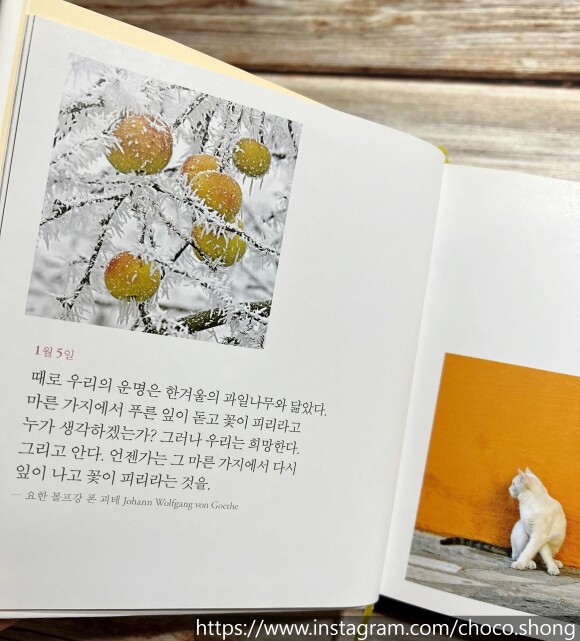 1월 5일
때로 우리의 운명은 한겨울의 과일나무와 닮았다.
마른 가지에서 푸른 잎이 돋고 꽃이 피리라고
누가 생각하겠는가? 그러나 우리는 희망한다.
그리고 안다. 언젠가는 그 마른 가지에서 다시
잎이 나고 꽃이 피리라는 것을.
— 요한 볼프강 폰 괴테 Johann Wolfgang von Goethe
https://www.instagram.com/choco.shong